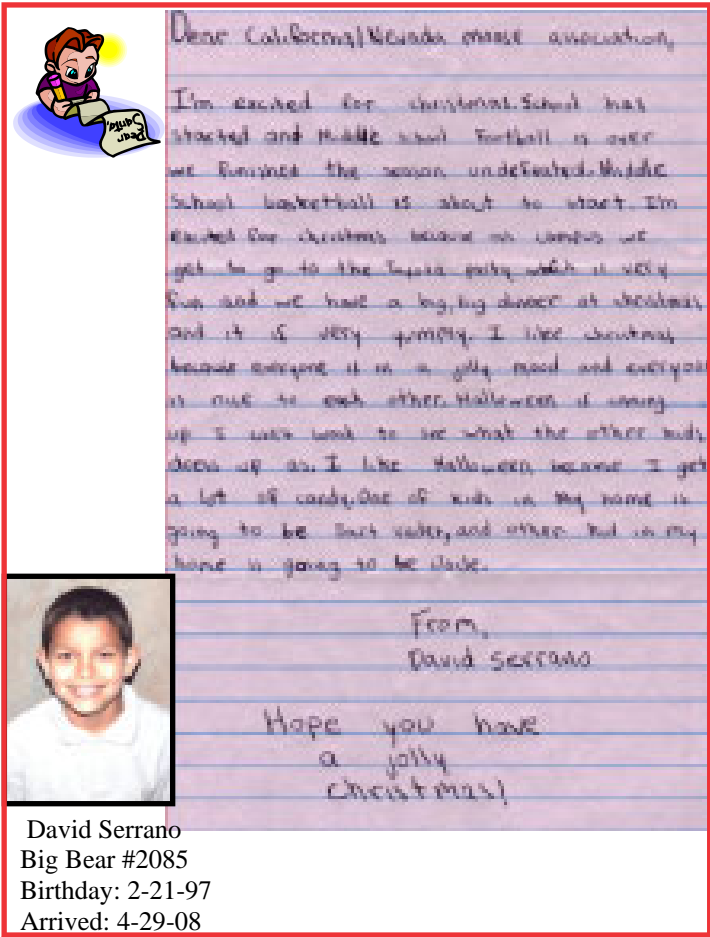 Dear Santa,
Dear California/Nevada moose association,
I'm excited for christmas. School has
started and Middle school Football is over
we finished the season undefeated. Middle
School basketball is about to start. I'm
excited for christmas because on campus we
get to go to the party which is very
fun and we have a big, big dinner at christmas
and it is very yummy. I like christmas
because everyone is in a jolly mood and everyone
is nice to each other. Halloween is coming
up I want to see what the other kids
dress up as. I like Halloween because I get
a lot of candy. One of kids in my home is
going to be Dart vader, and other kid in my
home is going to be
From,
David Serrano
Hope you have
a jolly
christmas!
David Serrano
Big Bear #2085
Birthday: 2-21-97
Arrived: 4-29-08